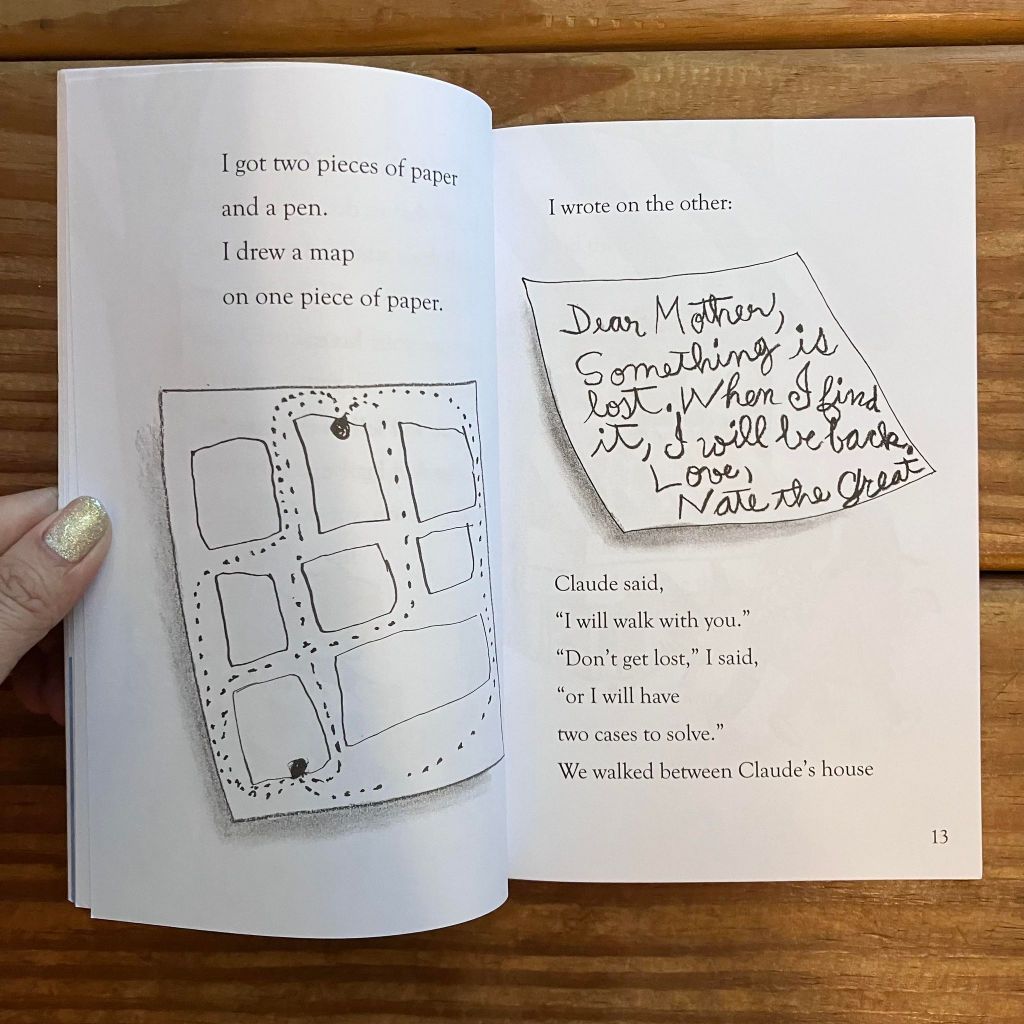 I got two pieces of paper
and a pen.
I drew a map
on one piece of paper.
I wrote on the other:
Dear Mother,
Something is
lost. When I find
it, I will be back.
Love,
Nate the Great
Claude said,
“I will walk with you.”
“Don’t get lost,” I said,
“or I will have
two cases to solve.”
We walked between Claude’s house
13